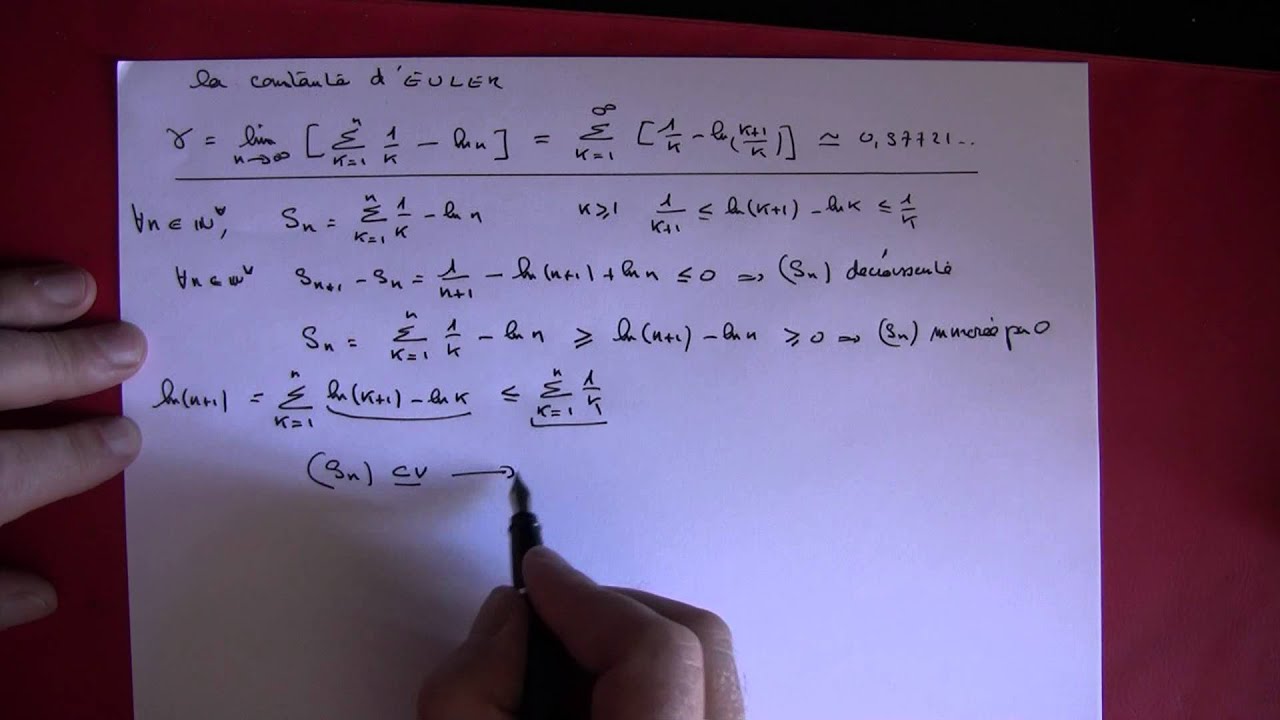 la constante d'EULER
γ = lim n→∞ [ ∑_{K=1}^{n} 1/K − ln n ] = ∑_{K=1}^{∞} [ 1/K − ln(K+1/K) ] ≃ 0,57721...
∀n ∈ ℕ*, Sn = ∑_{K=1}^{n} 1/K − ln n K ⩾ 1 1/K+1 ≤ ln(K+1) − ln K ≤ 1/K
∀n ∈ ℕ* Sn+1 − Sn = 1/n+1 − ln(n+1) + ln n ≤ 0 ⇒ (Sn) décroissante
Sn = ∑_{K=1}^{n} 1/K − ln n ⩾ ln(n+1) − ln n ⩾ 0 ⇒ (Sn) minorée par 0
ln(n+1) = ∑_{K=1}^{n} ln(K+1) − ln K ≤ ∑_{K=1}^{n} 1/K
(Sn) CV →